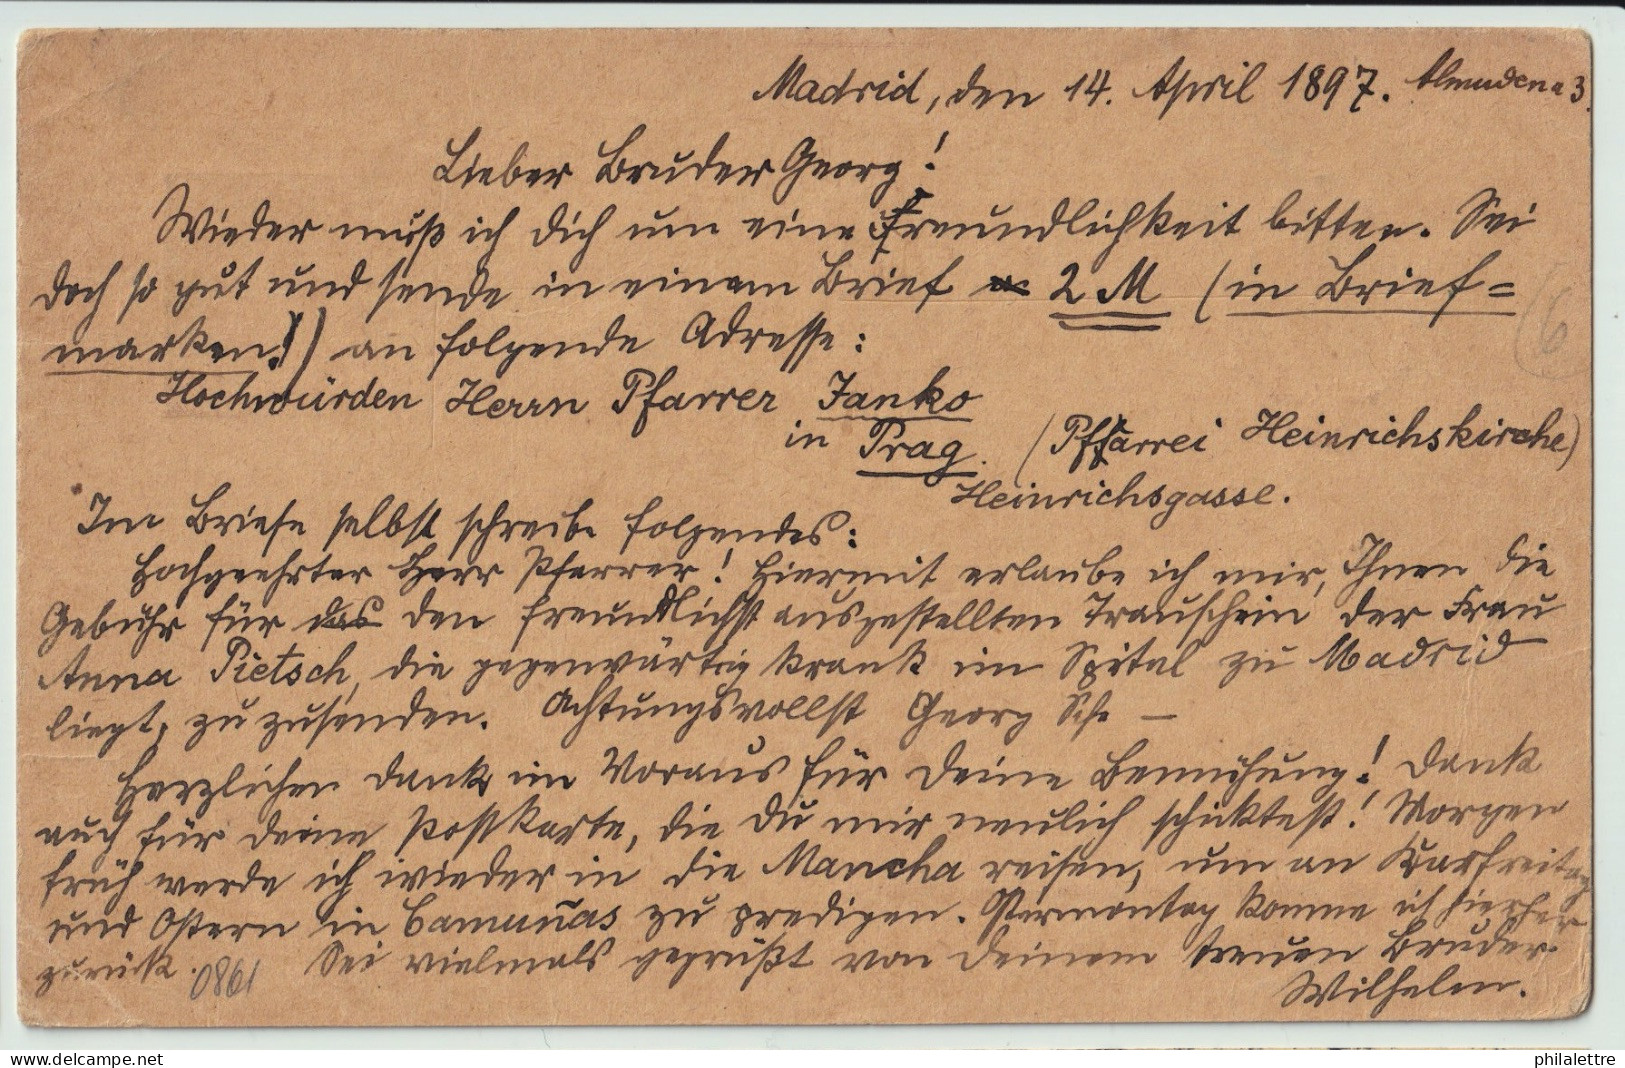 Madrid, den 14. April 1897. Almudena 3.
Lieber Bruder Georg!
Wieder muß ich dich um eine Freundlichkeit bitten. Sei
doch so gut und sende in einem Brief 2 M (in Brief=
marken!) an folgende Adresse:
Hochwürden Herrn Pfarrer Janko
in Prag. (Pfarrei Heinrichskirche)
Heinrichsgasse.
Im Briefe selbst schreibe folgendes:
Hochgeehrter Herr Pfarrer! Hiermit erlaube ich mir, Ihnen die
Gebühr für das den freundlichst ausgestellten Trauschein der Frau
Anna Pietsch, die gegenwärtig krank im Spital zu Madrid
liegt, zu zusenden. Achtungsvollst Georg Sch —
Herzlichen Dank im Voraus für Deine Bemühung! Dank
auch für Deine Postkarte, die Du mir neulich schicktest! Morgen
früh werde ich wieder in die Mancha reisen, um an Karfreitag
und Ostern in Camuñas zu predigen. Ostermontag komme ich hierher
zurück. Sei vielmals gegrüßt von Deinem treuen Bruder
Wilhelm.
0861
6
delcampe.net
philalettre